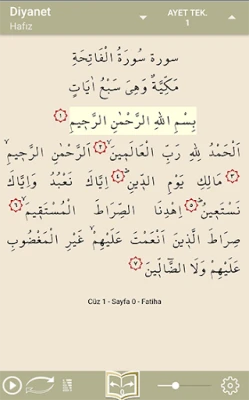 Diyanet
Hafız
AYET TEK.
1
سورة سُورَةُ الْفَاتِحَةِ
مَكِّيَّةٌ وَهِىَ سَبْعُ اٰيَاتٍ
بِسْمِ اللّٰهِ الرَّحْمٰنِ الرَّحٖيمِ ١
اَلْحَمْدُ لِلّٰهِ رَبِّ الْعَالَمٖينَ ٢ اَلرَّحْمٰنِ الرَّحٖيمِ
٣ مَالِكِ يَوْمِ الدّٖينِ ٤ اِيَّاكَ نَعْبُدُ وَاِيَّاكَ
نَسْتَعٖينُ ٥ اِهْدِنَا الصِّرَاطَ الْمُسْتَقٖيمَ ٦
صِرَاطَ الَّذٖينَ اَنْعَمْتَ عَلَيْهِمْ غَيْرِ الْمَغْضُوبِ
عَلَيْهِمْ وَلَا الضَّٓالّٖينَ ٧
Cüz 1 - Sayfa 0 - Fatiha
0